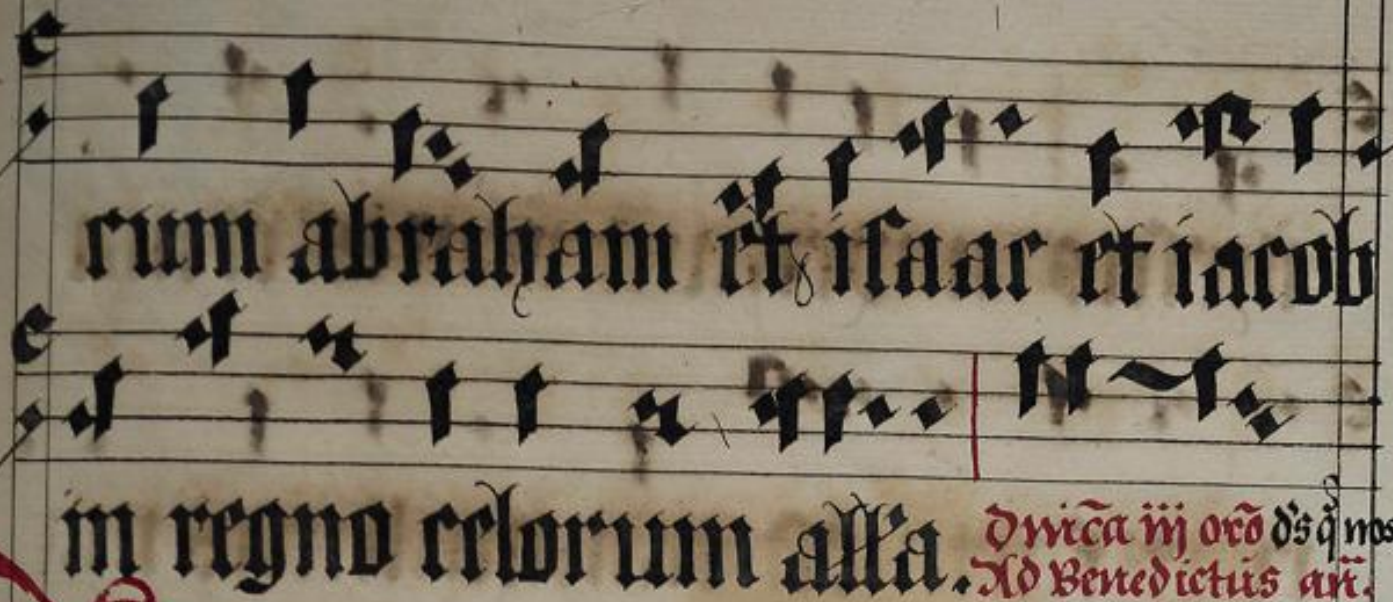 rum abraham et isaac et iacob
in regno celorum all'a.
Dnica iij oro ds q nos
Ad Benedictus an.